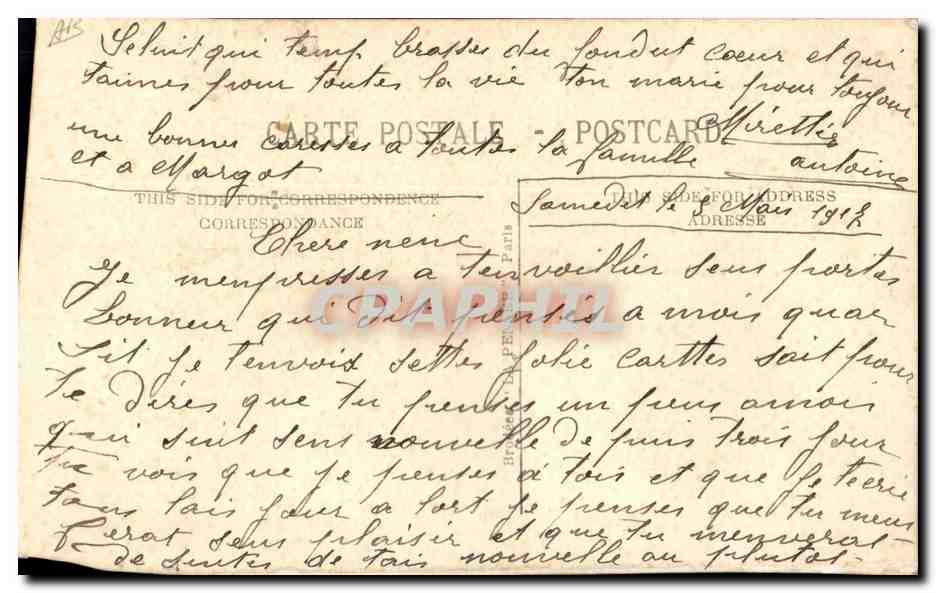 A13
Seluit qui temp brasses du fondut coeur et qui
taimes pour toutes la vie ton marie pour toujour
CARTE POSTALE - POSTCARD Mirettie
une bonnes caresses a toutes la famille antoine
et a Margot
THIS SIDE FOR CORRESPONDENCE
CORRESPONDANCE
THIS SIDE FOR ADDRESS
ADRESSE
Samedit le 5 Mars 191
Chere nene
Je mempresses a tenvoillier sens portes
Bonneur qui Dit penses a mois quar
Sit je tenvoix settes jolie carttes sait pour
te dires que tu penses un peus amois
quri suit sens nouvelle de puis trois jour
tu vois que je penses a tois et que je tecrie
tous lais jour a lort je penses que tu mens
ferat sens plaisir et que tu menverat
de suites de tais nouvelle au plutot-
Paris
CPAPHIL